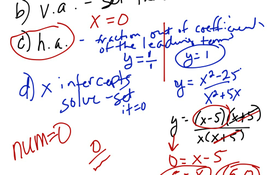 b) v.a. - set
x = 0
c) h.a. - fraction out of coefficients
of the leading term
y = 1/1
y = 1
d) x intercepts
solve - set
it = 0
y = x²-25 / x²+5x
y = (x-5)(x+5) / x(x+5)
num = 0
0
0 = x - 5